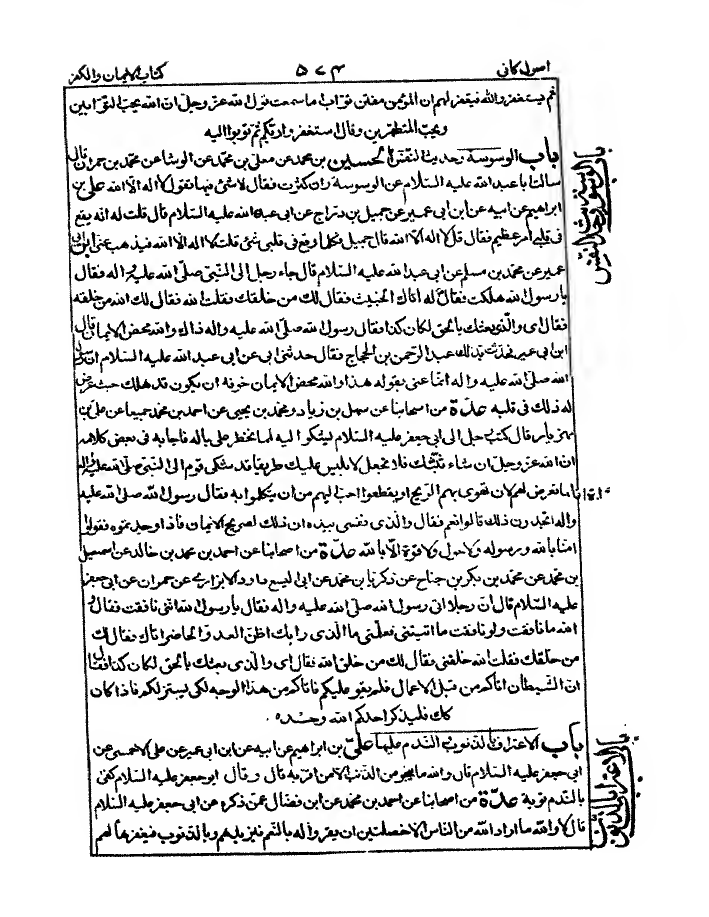 اصول كافى ٥٧٤ كتاب الايمان والكفر
ثم يستغفر والله فيغفر لهم ان المؤمن مفتن تواب اما سمعت قول الله عز وجل ان الله يحب التوابين
ويحب المتطهرين وقال استغفروا ربكم ثم توبوا اليه
باب الوسوسة وحديث النفس الحسين بن محمد عن معلى بن محمد عن الوشا عن محمد بن حمران قال
سالت ابا عبد الله عليه السلام عن الوسوسة وان كثرت فقال لا شئ فيها تقول لا اله الا الله على بن
ابراهيم عن ابيه عن ابن ابى عمير عن جميل بن دراج عن ابى عبد الله عليه السلام قال قلت له انه يقع
فى قلبى امر عظيم فقال قل لا اله الا الله قال جميل فكلما وقع فى قلبى شئ قلت لا اله الا الله فيذهب عنى ابن ابى
عمير عن محمد بن مسلم عن ابى عبد الله عليه السلام قال جاء رجل الى النبى صلى الله عليه واله فقال
يا رسول الله هلكت فقال له اتاك الخبيث فقال لك من خلقك فقلت الله فقال لك الله من خلقه
فقال اى والذى بعثك بالحق لكان كذا فقال رسول الله صلى الله عليه واله ذاك والله محض الايمان قال
ابن ابى عمير فحدثت بذلك عبد الرحمن بن الحجاج فقال حدثنى ابى عن ابى عبد الله عليه السلام ان رسول
الله صلى الله عليه واله انما عنى بقوله هذا والله محض الايمان خوفه ان يكون قد هلك حيث عرض
له ذلك فى قلبه عدة من اصحابنا عن سهل بن زياد ومحمد بن يحيى عن احمد بن محمد جميعا عن على بن
مهزيار قال كتب رجل الى ابى جعفر عليه السلام يشكو اليه لمما يخطر على باله فاجابه فى بعض كلامه
ان الله عز وجل ان شاء ثبتك فلا يجعل لابليس عليك طريقا قد شكى قوم الى النبى صلى الله عليه واله
لمما يعرض لهم لان تهوى بهم الريح او يقطعوا احب اليهم من ان يتكلموا به فقال رسول الله صلى الله عليه
واله اتجدون ذلك قالوا نعم فقال والذى نفسى بيده ان ذلك لصريح الايمان فاذا وجدتموه فقولوا
امنا بالله ورسوله ولا حول ولا قوة الا بالله عدة من اصحابنا عن احمد بن محمد بن خالد عن اسمعيل
بن محمد عن محمد بن بكر بن جناح عن زكريا بن محمد عن ابى اليسع داود الابزارى عن حمران عن ابى جعفر
عليه السلام قال ان رجلا اتى رسول الله صلى الله عليه واله فقال يا رسول الله اننى نافقت فقال
الله ما نافقت ولو نافقت ما اتيتنى تعلمنى ما الذى رابك اظن العدو الحاضر اتاك فقال لك
من خلقك فقلت الله خلقنى فقال لك من خلق الله فقال اى والذى بعثك بالحق لكان كذا فقال
ان الشيطان اتاكم من قبل الاعمال فلم يقو عليكم فاتاكم من هذا الوجه لكى يستزلكم فاذا كان
كك فليذكر احدكم الله وحده
باب الاعتراف بالذنوب والندم عليها على بن ابراهيم عن ابيه عن ابن ابى عمير عن على الاحمسى عن
ابى جعفر عليه السلام قال والله ما ينجو من الذنب الا من اقر به قال وقال ابو جعفر عليه السلام كفى
بالندم توبة عدة من اصحابنا عن احمد بن محمد عن ابن فضال عمن ذكره عن ابى جعفر عليه السلام
قال لا والله ما اراد الله من الناس الا خصلتين ان يقروا له بالنعم فيزيدهم وبالذنوب فيغفرها لهم
باب الوسوسة وحديث النفس
باب الاعتراف بالذنوب